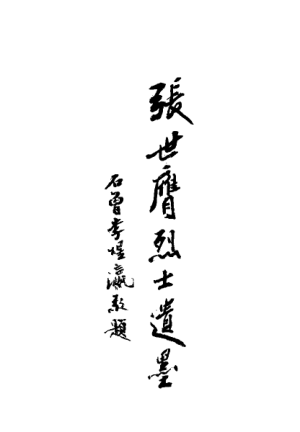 張世膺烈士遺墨
石曾李煜瀛敬題